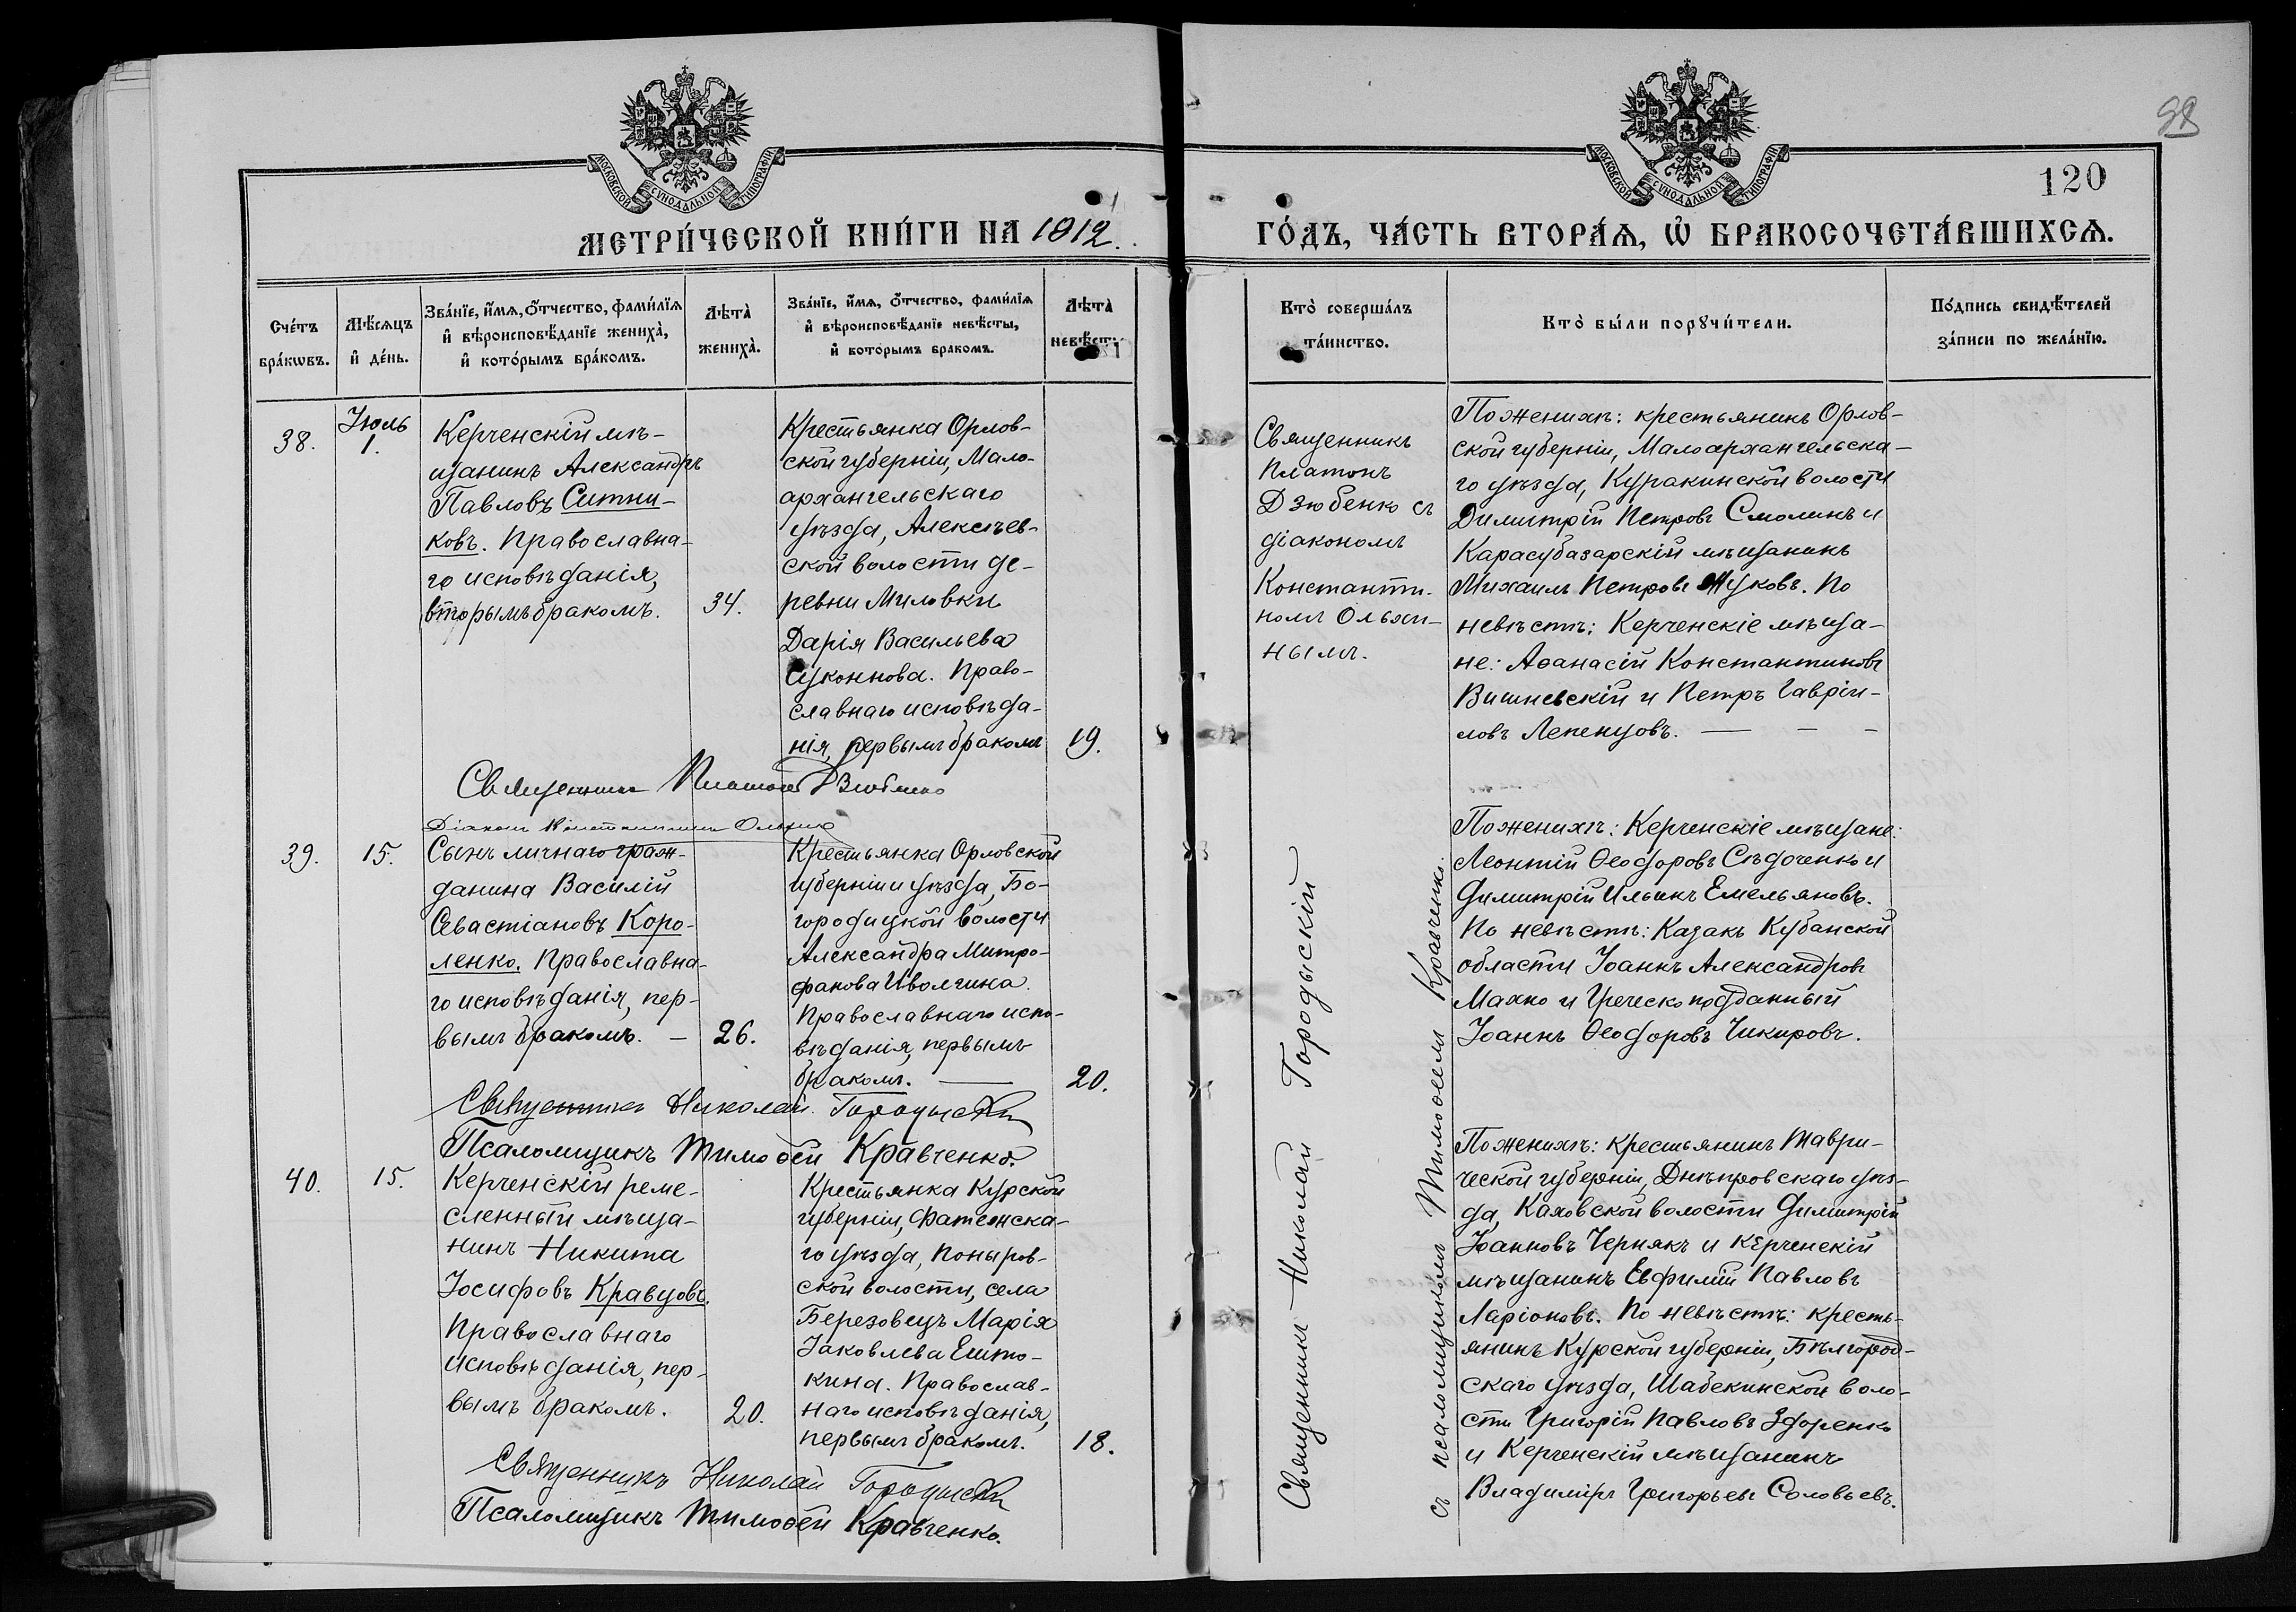 98
120
МОСКОВСКОЙ СУНОДАЛЬНОЙ ТИПОГРАФІИ
МОСКОВСКОЙ СУНОДАЛЬНОЙ ТИПОГРАФІИ
МЕТРИ́ЧЕСКОЙ КНИ́ГИ НА 1912.
ГО́ДЪ, ЧА́СТЬ ВТОРА́Ѧ, Ѽ БРАКОСОЧЕТА́ВШИХСѦ.
Сче́тъ бра́кѡвъ.
Мѣ́сѧцъ и҆ де́нь.
Зва́нїе, и҆́мѧ, ѻ҆́тчество, фами́лїѧ
и҆ вѣроисповѣ́данїе жениха̀,
и҆ кото́рымъ бра́комъ.
Лѣта̀ жениха̀.
Зва́нїе, и҆́мѧ, ѻ҆́тчество, фами́лїѧ
и҆ вѣроисповѣ́данїе невѣ́сты,
и҆ которымъ бракомъ.
Лѣта̀
Кто̀ соверша́лъ
та́инство.
Кто̀ бы́ли порꙋчи́тели.
По́дпись свидѣ́телей
за́писи по жела́нїю.
38.
Іюль
1.
Керченскій мѣ-
щанинъ Александръ
Павловъ Ситни-
ковъ. Православна-
го исповѣданія,
вторымъ бракомъ.
34.
Крестьянка Орлов-
ской губерніи, Мало-
архангельскаго
уѣзда, Алексѣев-
ской волости де-
ревни Миловки
Дарія Васильева
Суконнова. Право-
славнаго исповѣда-
нія, первымъ бракомъ
19.
Священникъ
Платонъ
Дзюбенко съ
діакономъ
Константи-
номъ Ольхи-
нымъ.
По женихѣ: крестьянинъ Орлов-
ской губерніи, Малоархангельска-
го уѣзда, Куракинской волости
Димитрій Петровъ Смолинъ и
Карасубазарскій мѣщанинъ
Михаилъ Петровъ Жуковъ. По
невѣстѣ: Керченскіе мѣща-
не: Аѳанасій Константиновъ
Вишневскій и Петръ Гавріи-
ловъ Лепенцовъ.
Священникъ Платонъ Дзюбенко
Діаконъ Константинъ Ольхинъ
39.
15.
Сынъ личнаго граж-
данина Василій
Севастіановъ Коро-
ленко. Православна-
го исповѣданія, пер-
вымъ бракомъ. —
26.
Крестьянка Орловской
губерніи и уѣзда, Бо-
городицкой волости
Александра Митро-
фанова Иволгина.
Православнаго испо-
вѣданія, первымъ
бракомъ. —
20.
По женихѣ: Керченскіе мѣщане:
Леонтій Ѳеодоровъ Сѣдоченко и
Димитрій Ильинъ Емельяновъ.
По невѣстѣ: Казакъ Кубанской
области Іоаннъ Александровъ
Махно и Греческоподданный
Іоаннъ Ѳеодоровъ Чикировъ.
Священникъ Николай Городыскій
Псаломщикъ Тимоѳей Кравченко.
40.
15.
Керченскій реме-
сленный мѣща-
нинъ Никита
Іосифовъ Кравцовъ.
Православнаго
исповѣданія, пер-
вымъ бракомъ.
20.
Крестьянка Курской
губерніи, Фатежска-
го уѣзда, Поныров-
ской волости, села
Березовецъ Марія
Іаковлева
Православ-
наго исповѣданія,
первымъ бракомъ.
18.
Священникъ Николай Городыскій
съ псаломщикомъ Тимоѳеемъ Кравченко.
По женихѣ: крестьянинъ Таври-
ческой губерніи, Днѣпровскаго уѣз-
да, Каховской волости Димитрій
Іоанновъ Чернякъ и Керченскій
мѣщанинъ Евфимій Павловъ
Ларіоновъ. По невѣстѣ: кресть-
янинъ Курской губерніи, Бѣлгород-
скаго уѣзда, Шабекинской воло-
сти Григорій Павловъ Здоренко
и Керченскій мѣщанинъ
Владиміръ Григорьевъ Соловьевъ.
Священникъ Николай Городыскій
Псаломщикъ Тимоѳей Кравченко.